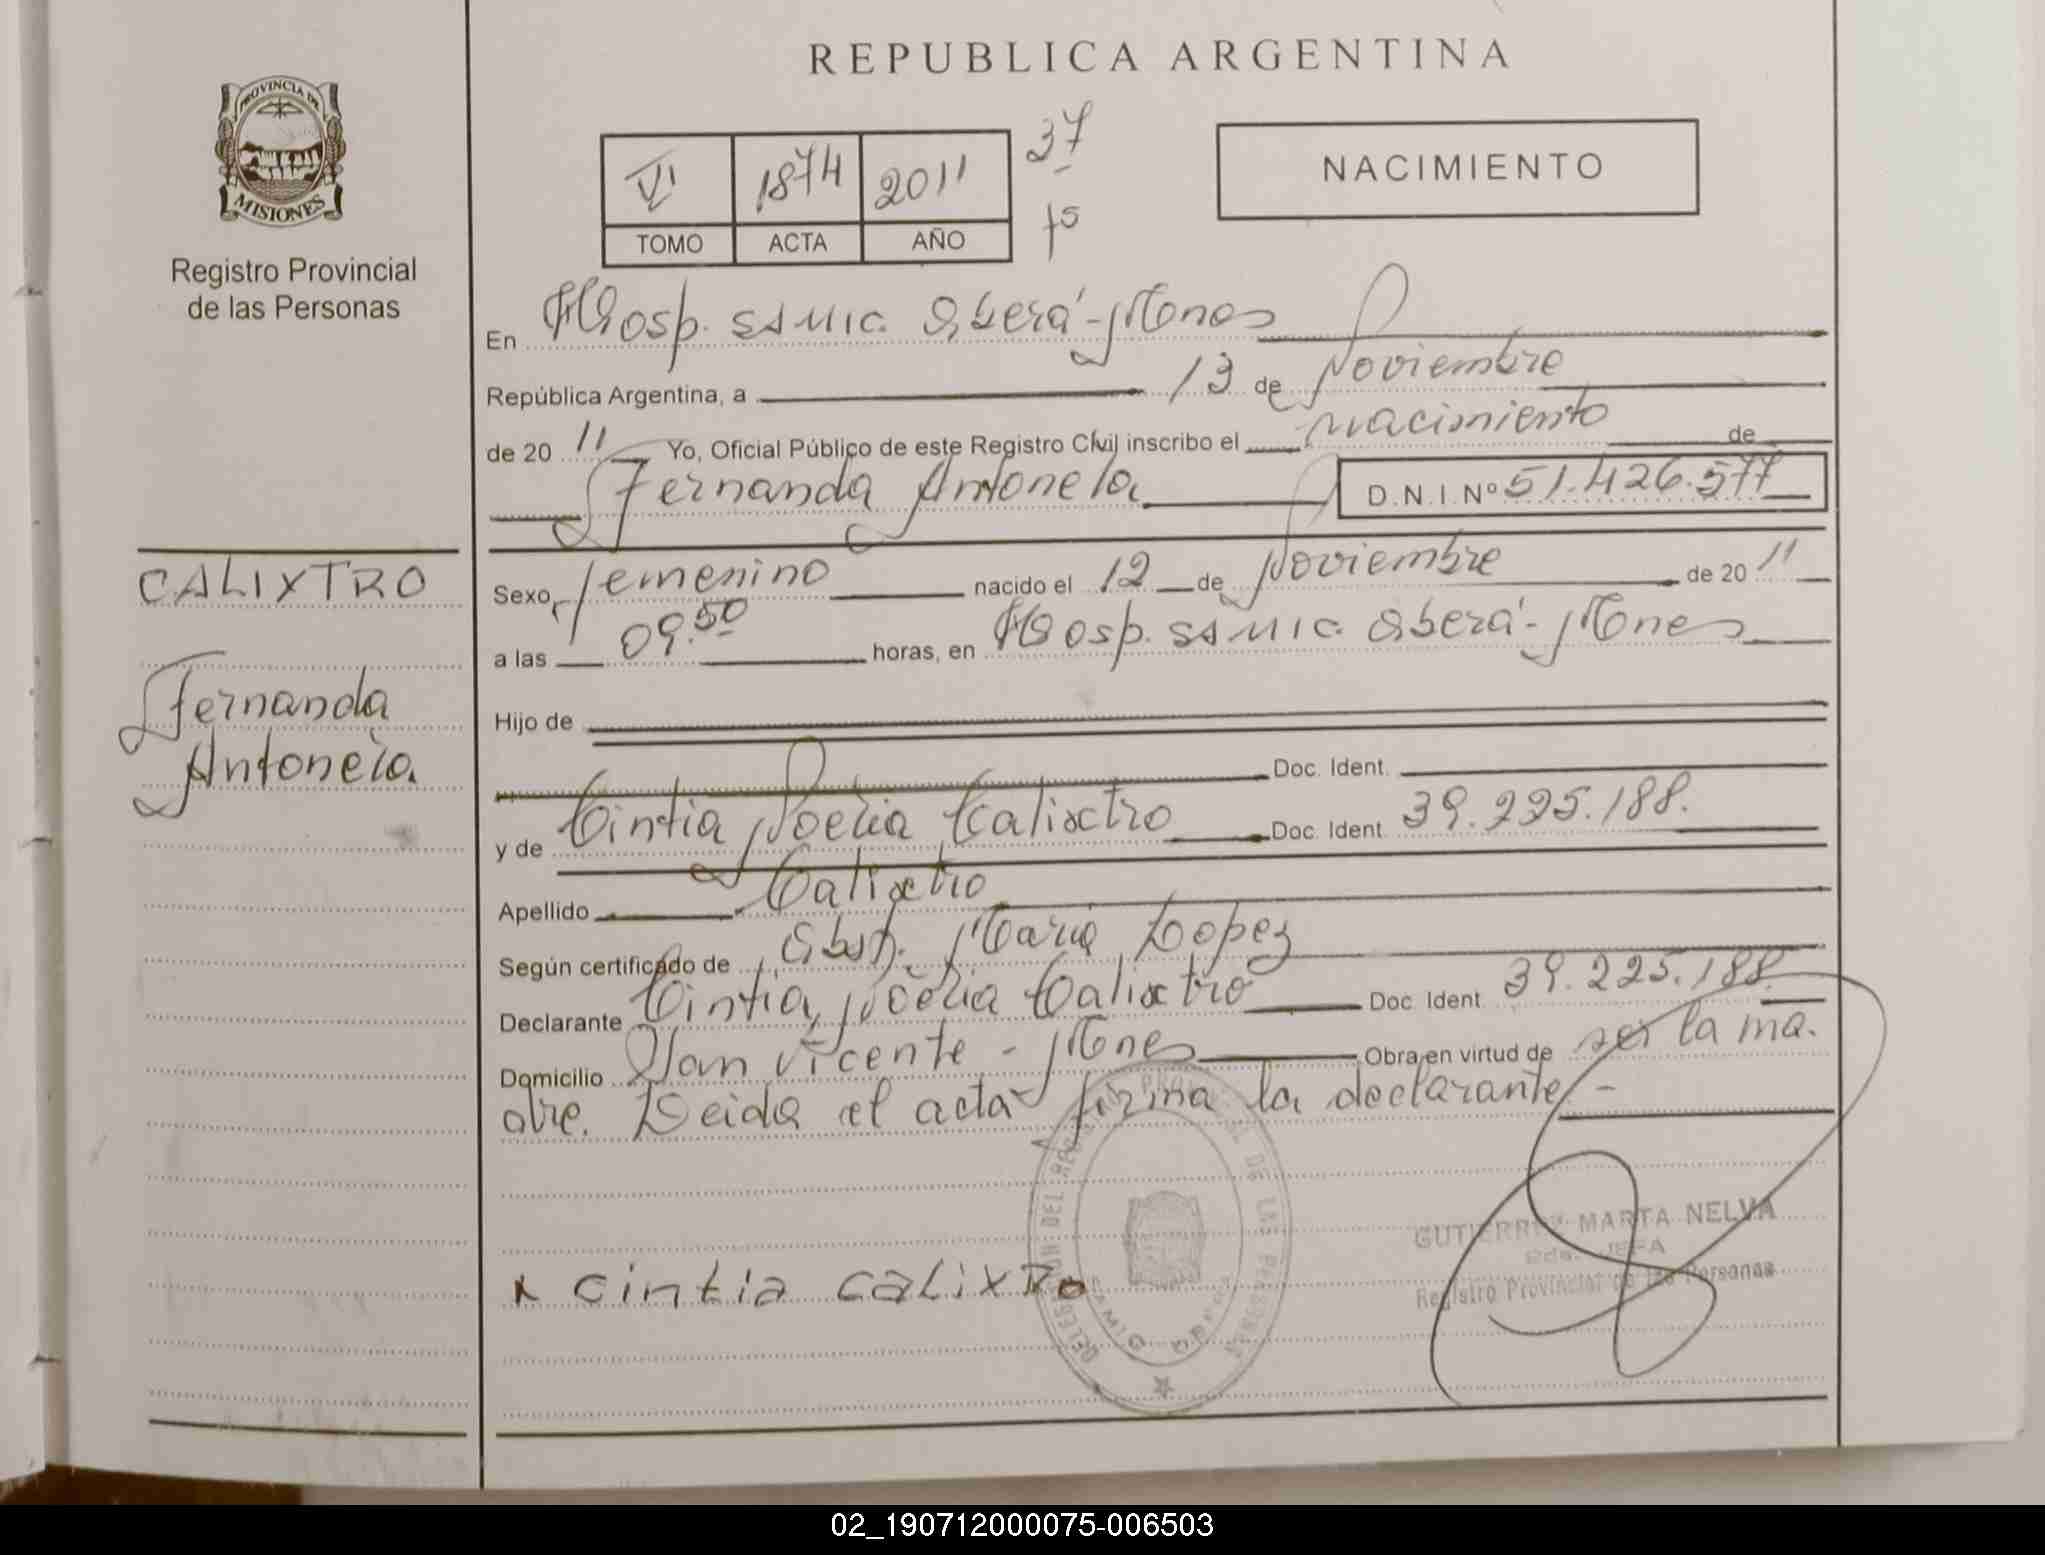 REPUBLICA ARGENTINA
PROVINCIA DE
MISIONES
Registro Provincial
de las Personas
VI 1874 2011
TOMO ACTA AÑO
37
fs
NACIMIENTO
En Hosp. SAMIC. Oberá - Mnes
República Argentina, a 13 de Noviembre
de 20 11 Yo, Oficial Público de este Registro Civil inscribo el nacimiento de
Fernanda Antonela D.N.I. Nº 51.426.577
CALIXTRO
Fernanda
Antonela
Sexo femenino nacido el 12 de Noviembre de 20 11
a las 09.50 horas, en Hosp. SAMIC. Oberá - Mnes
Hijo de
Doc. Ident.
y de Cintia Noelia Calixtro Doc. Ident. 39.225.188.
Apellido Calixtro
Según certificado de Obst. Maria Lopez
Declarante Cintia Noelia Calixtro Doc. Ident. 39.225.188.
Domicilio San Vicente - Mnes Obra en virtud de ser la ma.
dre. Leida el acta firma la declarante -
x cintia calixtro
DELEGACION DEL DE LAS PERSONAS
GUTIERREZ MARTA NELVA
JEFA
Registro Provincial de las Personas
02_190712000075-006503